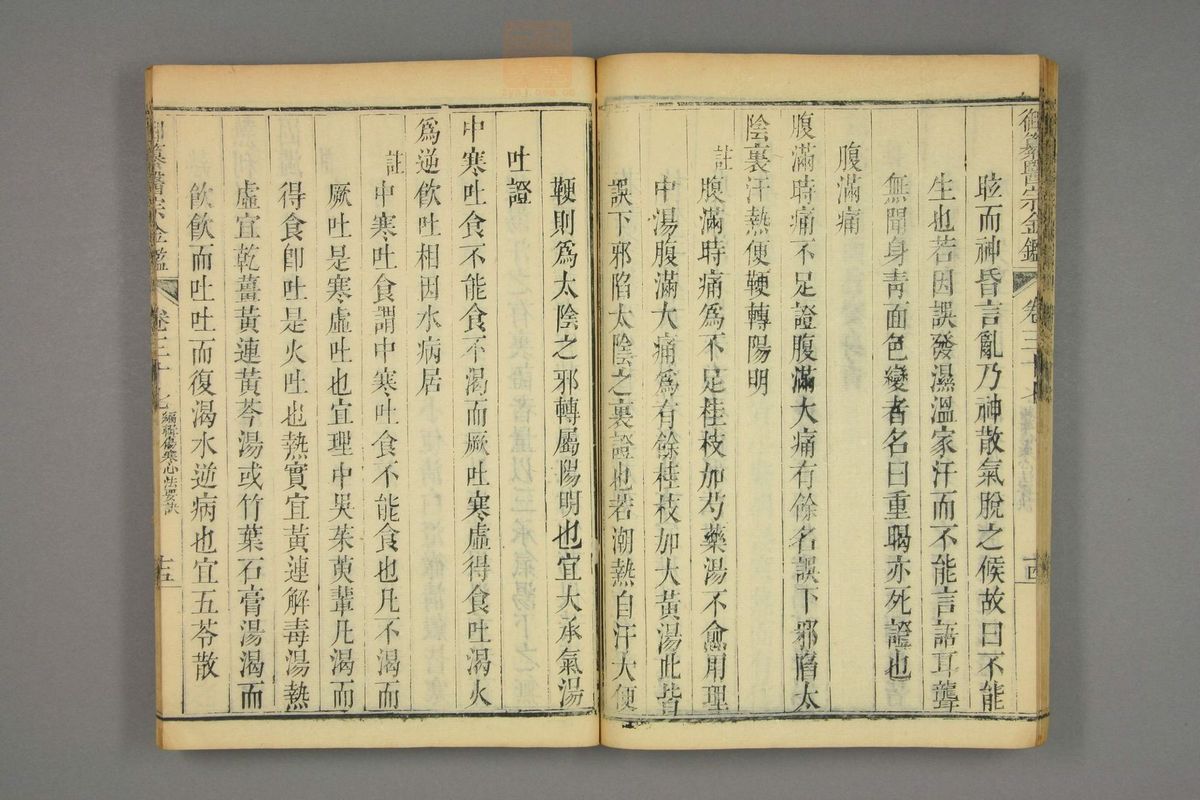 御纂醫宗金鑑 卷三十七 十四
眩而神昏言亂乃神散氣脫之候故曰不能
生也若因誤發濕溫家汗而不能言語耳聾
無聞身靑面色變者名曰重暍亦死證也
腹滿痛
腹滿時痛不足證腹滿大痛有餘名誤下邪陷太
陰裏汗熱便鞕轉陽明
註腹滿時痛爲不足桂枝加芍藥湯不愈用理
中湯腹滿大痛爲有餘桂枝加大黃湯此皆
誤下邪陷太陰之裏證也若潮熱自汗大便
鞕則爲太陰之邪轉屬陽明也宜大承氣湯
吐證
中寒吐食不能食不渴而厥吐寒虛得食吐渴火
爲逆飮吐相因水病居
註中寒吐食謂中寒吐食不能食也凡不渴而
厥吐是寒虛吐也宜理中吳茱萸輩凡渴而
得食卽吐是火吐也熱實宜黃連解毒湯熱
虛宜乾薑黃連黃芩湯或竹葉石膏湯渴而
飮飮而吐吐而復渴水逆病也宜五苓散
御纂醫宗金鑑 卷三十七 編輯傷寒心法要訣 十五